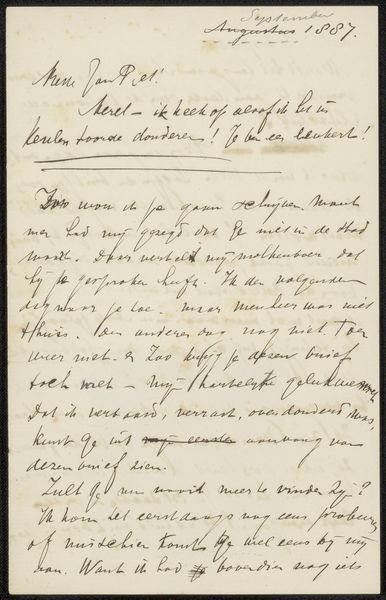 September
Augustus 1887.
Jan Piet!
Merel - ik keek op alsof ik het in
Keulen hoorde donderen! Je ben een leukert!
Zoo won ik je gaan schrijven. Want
men had mij gezegd dat Ge niet in de stad
waart. Daar vertelt mij molkenboer dat
hij je gesproken heeft. Ik den volgenden
dag naar je toe. maar menheer was niet
thuis. den anderen dag nog niet toen
weer niet. en Zoo krijg je dezen brief
toch met - mijn hartelijke gelukwensch
Dat ik verbaasd, verrast, overdonderd was,
kunt Ge uit mijn eerste aanvang van
dezen brief zien.
Zult Ge nu nooit meer te vinden zijn?
Ik kom het eerstdaags nog eens probeeren
of misschien komt Ge wel eens bij mij
aan. Want ik had bovendien nog iets